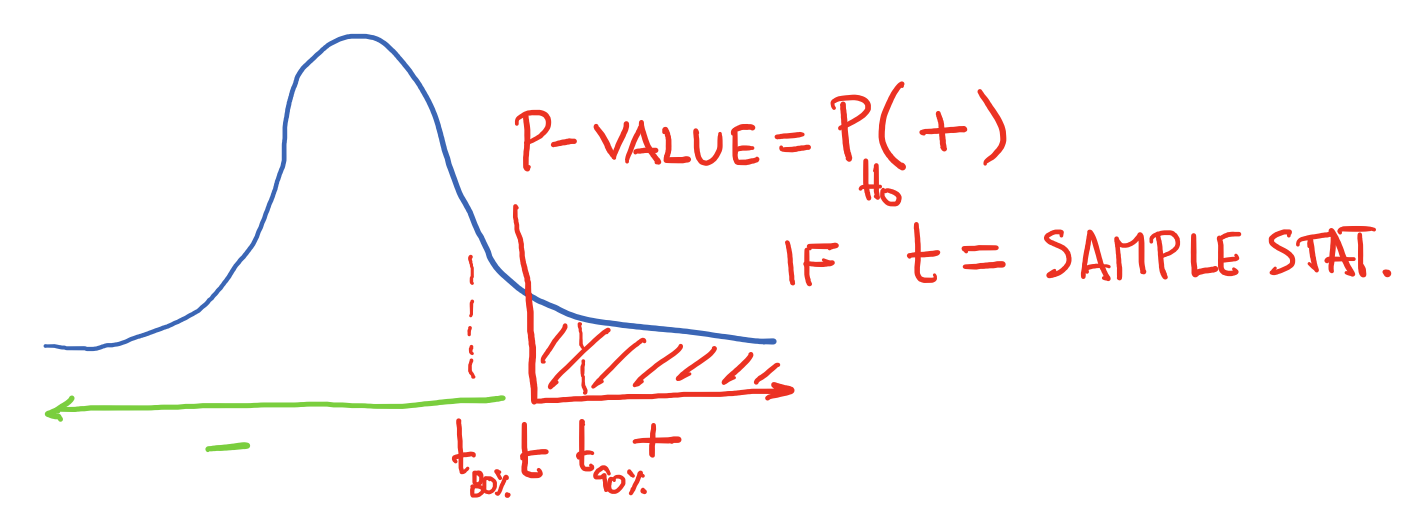 P-VALUE = P_H0(+)
IF t = SAMPLE STAT.
− t80% t t90% +